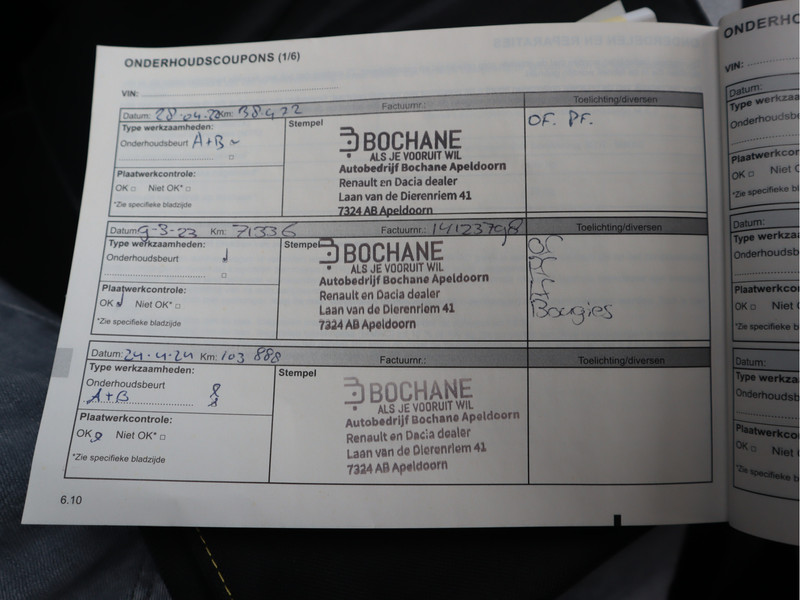 ONDERHOUDSCOUPONS (1/6)
VIN:
Datum: 28-04-22 Km: 38.972 Factuurnr.: Toelichting/diversen
Type werkzaamheden: Stempel OF. PF.
Onderhoudsbeurt A+B
BOCHANE
ALS JE VOORUIT WIL
Autobedrijf Bochane Apeldoorn
Renault en Dacia dealer
Laan van de Dierenriem 41
7324 AB Apeldoorn
Plaatwerkcontrole:
OK Niet OK*
*Zie specifieke bladzijde
Datum: 9-3-23 Km: 71336 Factuurnr.: Toelichting/diversen
Type werkzaamheden: Stempel
Onderhoudsbeurt
BOCHANE
ALS JE VOORUIT WIL
Autobedrijf Bochane Apeldoorn
Renault en Dacia dealer
Laan van de Dierenriem 41
7324 AB Apeldoorn
Bougies
Plaatwerkcontrole:
OK Niet OK*
*Zie specifieke bladzijde
Datum: 24-4-24 Km: 103 888 Factuurnr.: Toelichting/diversen
Type werkzaamheden: Stempel
Onderhoudsbeurt
A+B
BOCHANE
ALS JE VOORUIT WIL
Autobedrijf Bochane Apeldoorn
Renault en Dacia dealer
Laan van de Dierenriem 41
7324 AB Apeldoorn
Plaatwerkcontrole:
OK Niet OK*
*Zie specifieke bladzijde
6.10
ONDERHO
VIN:
Datum:
Type werkza
Onderhoudsb
Plaatwerkcor
OK Niet
*Zie specifieke
Datum:
Type werkza
Onderhoudsb
Plaatwerkco
OK Niet
*Zie specifieke
Datum:
Type werkza
Onderhoudsb
Plaatwerkco
OK Niet
*Zie specifieke